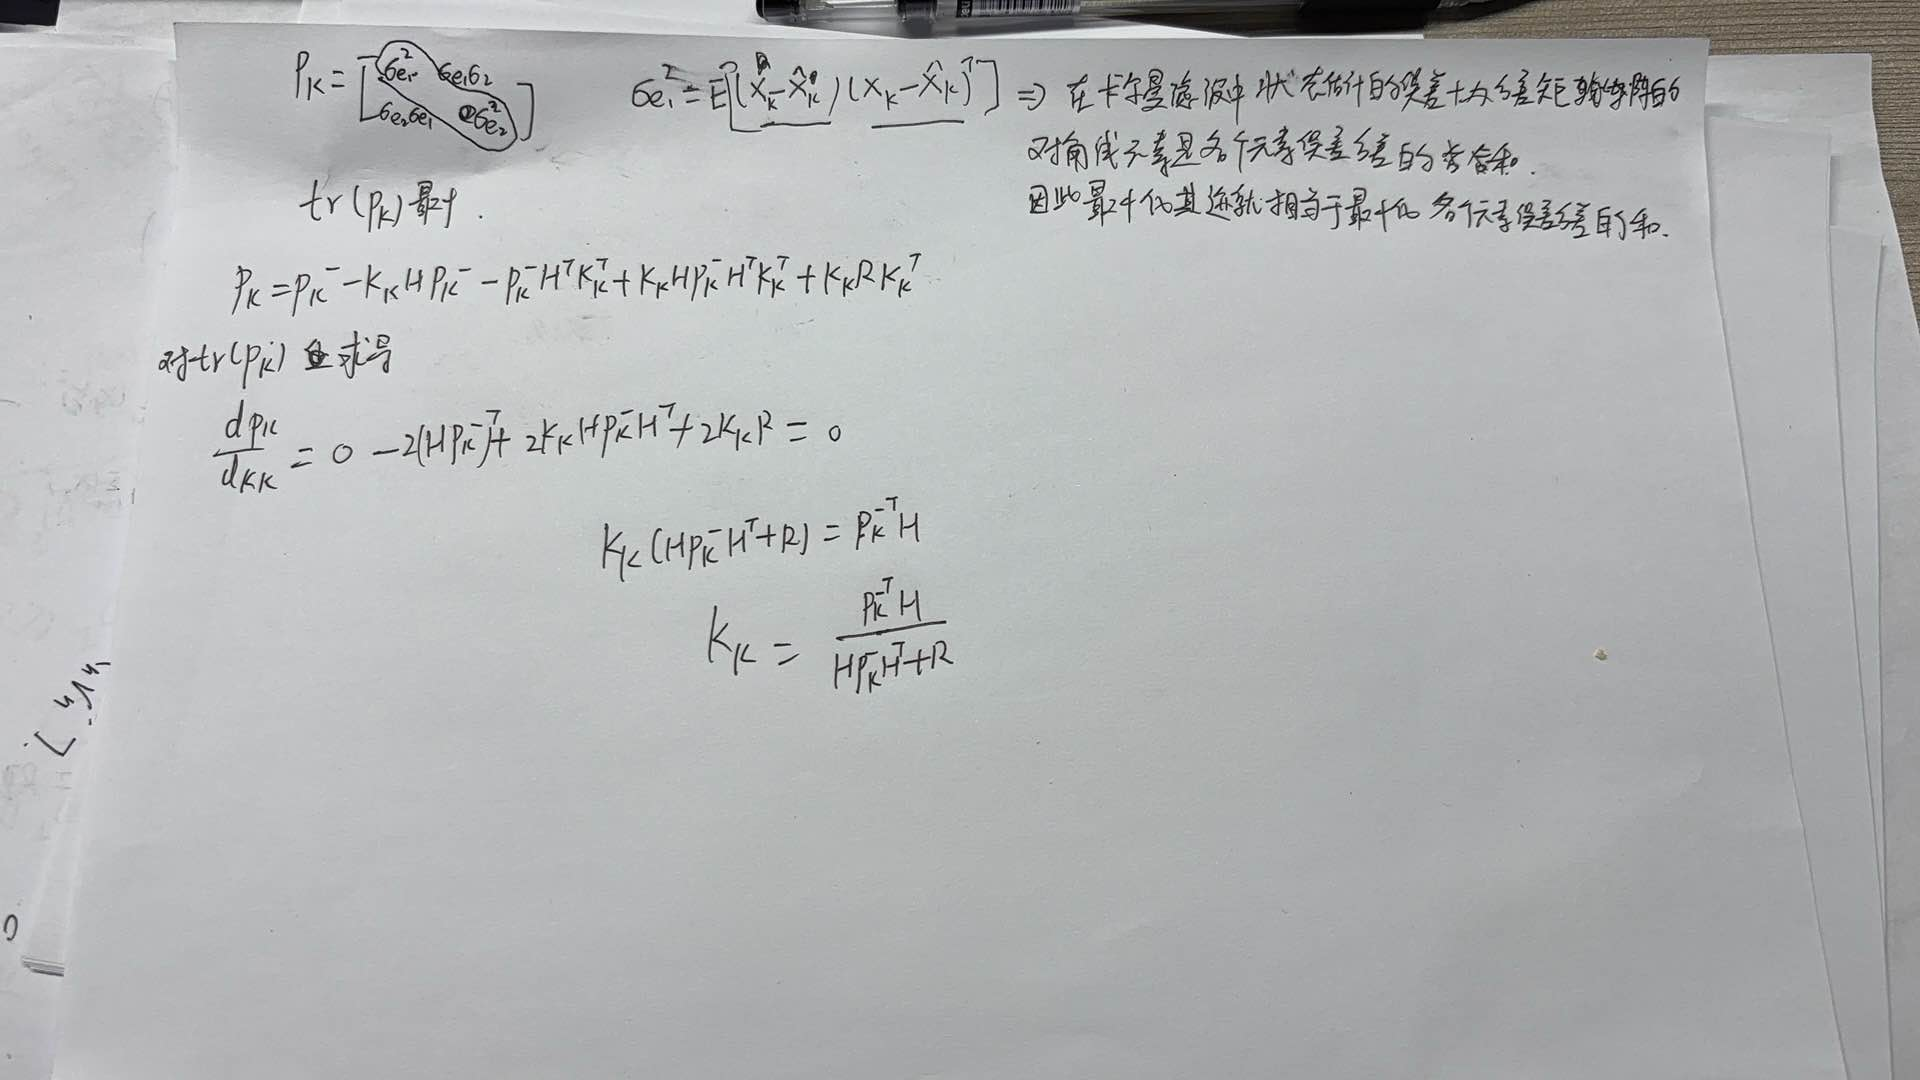 P_K = [σe₁² σe₁σ₂ σe₂σe₁ σe₂²] σe₁² = E[(X_K - X̂_K)(X_K - X̂_K)ᵀ] ⇒ 在卡尔曼滤波中状态估计的误差协方差矩阵的
对角线元素是各个元素误差方差的
tr(P_K)最小.
因此最小化其迹就相当于最小化各个元素误差方差的和.
P_K = P_K⁻ - K_K H P_K⁻ - P_K⁻ Hᵀ K_Kᵀ + K_K H P_K⁻ Hᵀ K_Kᵀ + K_K R K_Kᵀ
对tr(P_K)求导
dP_K/dK_K = 0 - 2(HP_K⁻)ᵀ + 2K_K H P_K⁻ Hᵀ + 2K_K R = 0
K_K(HP_K⁻Hᵀ+R) = P_K⁻ᵀH
K_K = P_K⁻ᵀH / HP_K⁻Hᵀ+R